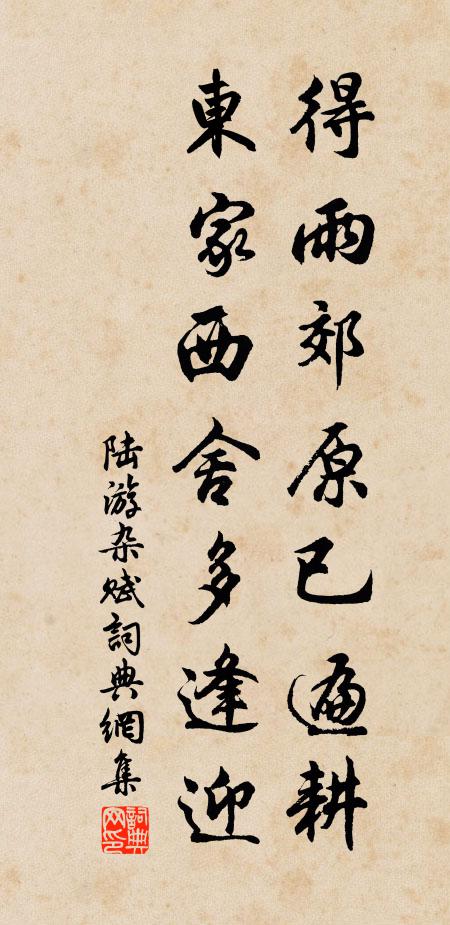 得雨郊原已遍耕
東家西舍多逢迎
陆游杂赋詞典網集
詞典网印